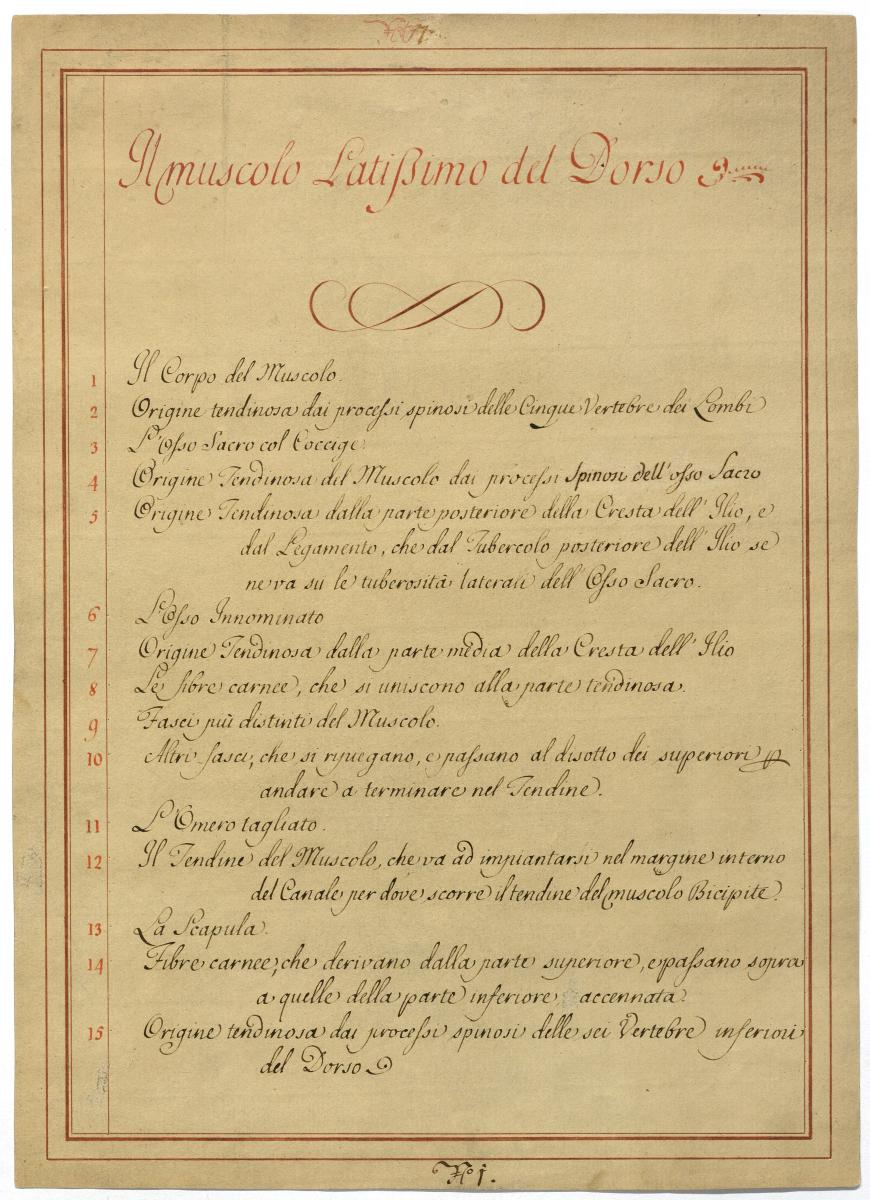 Il muscolo Latißimo del Dorso
1 Il Corpo del Muscolo.
2 Origine tendinosa dai processi spinosi delle Cinque Vertebre dei Lombi
3 L'Osso Sacro col Coccige.
4 Origine Tendinosa del Muscolo dai processi spinosi dell'osso Sacro
5 Origine Tendinosa dalla parte posteriore della Cresta dell'Ilio, e
dal Legamento, che dal Tubercolo posteriore dell'Ilio se
ne va su le tuberosità laterali dell'Osso Sacro.
6 L'Osso Innominato
7 Origine Tendinosa dalla parte media della Cresta dell'Ilio
8 Le fibre carnee, che si uniscono alla parte tendinosa.
9 Fasci più distinti del Muscolo.
10 Altri fasci, che si ripiegano, e passano al disotto dei superiori
andare a terminare nel Tendine.
11 L'Omero tagliato.
12 Il Tendine del Muscolo, che va ad impiantarsi nel margine interno
del Canale per dove scorre il tendine del muscolo Bicipite.
13 La Scapula.
14 Fibre carnee, che derivano dalla parte superiore, e passano sopra
a quelle della parte inferiore accennata.
15 Origine tendinosa dai processi spinosi delle sei Vertebre inferiori
del Dorso
No 1.